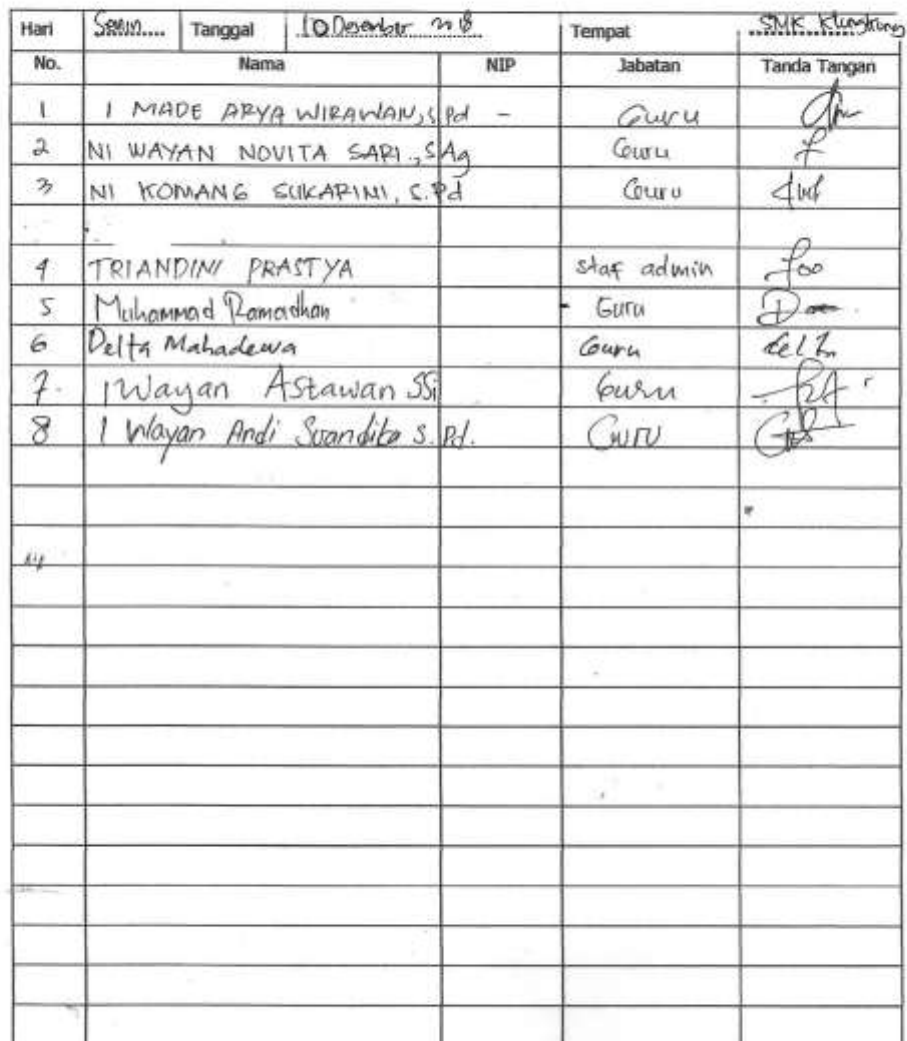 Hari Senin.... Tanggal 10 Desember 2018 Tempat SMK Klungkung
No. Nama NIP Jabatan Tanda Tangan
1 I MADE ARYA WIRAWAN, S.Pd - Guru
2 NI WAYAN NOVITA SARI., S.Ag Guru
3 NI KOMANG SUKARINI, S.Pd Guru
4 TRIANDINI PRASTYA staf admin
5 Muhammad Ramadhan - Guru
6 Delta Mahadewa Guru
7. I Wayan Astawan SSi Guru
8 I Wayan Andi Suandita S.Pd. Guru